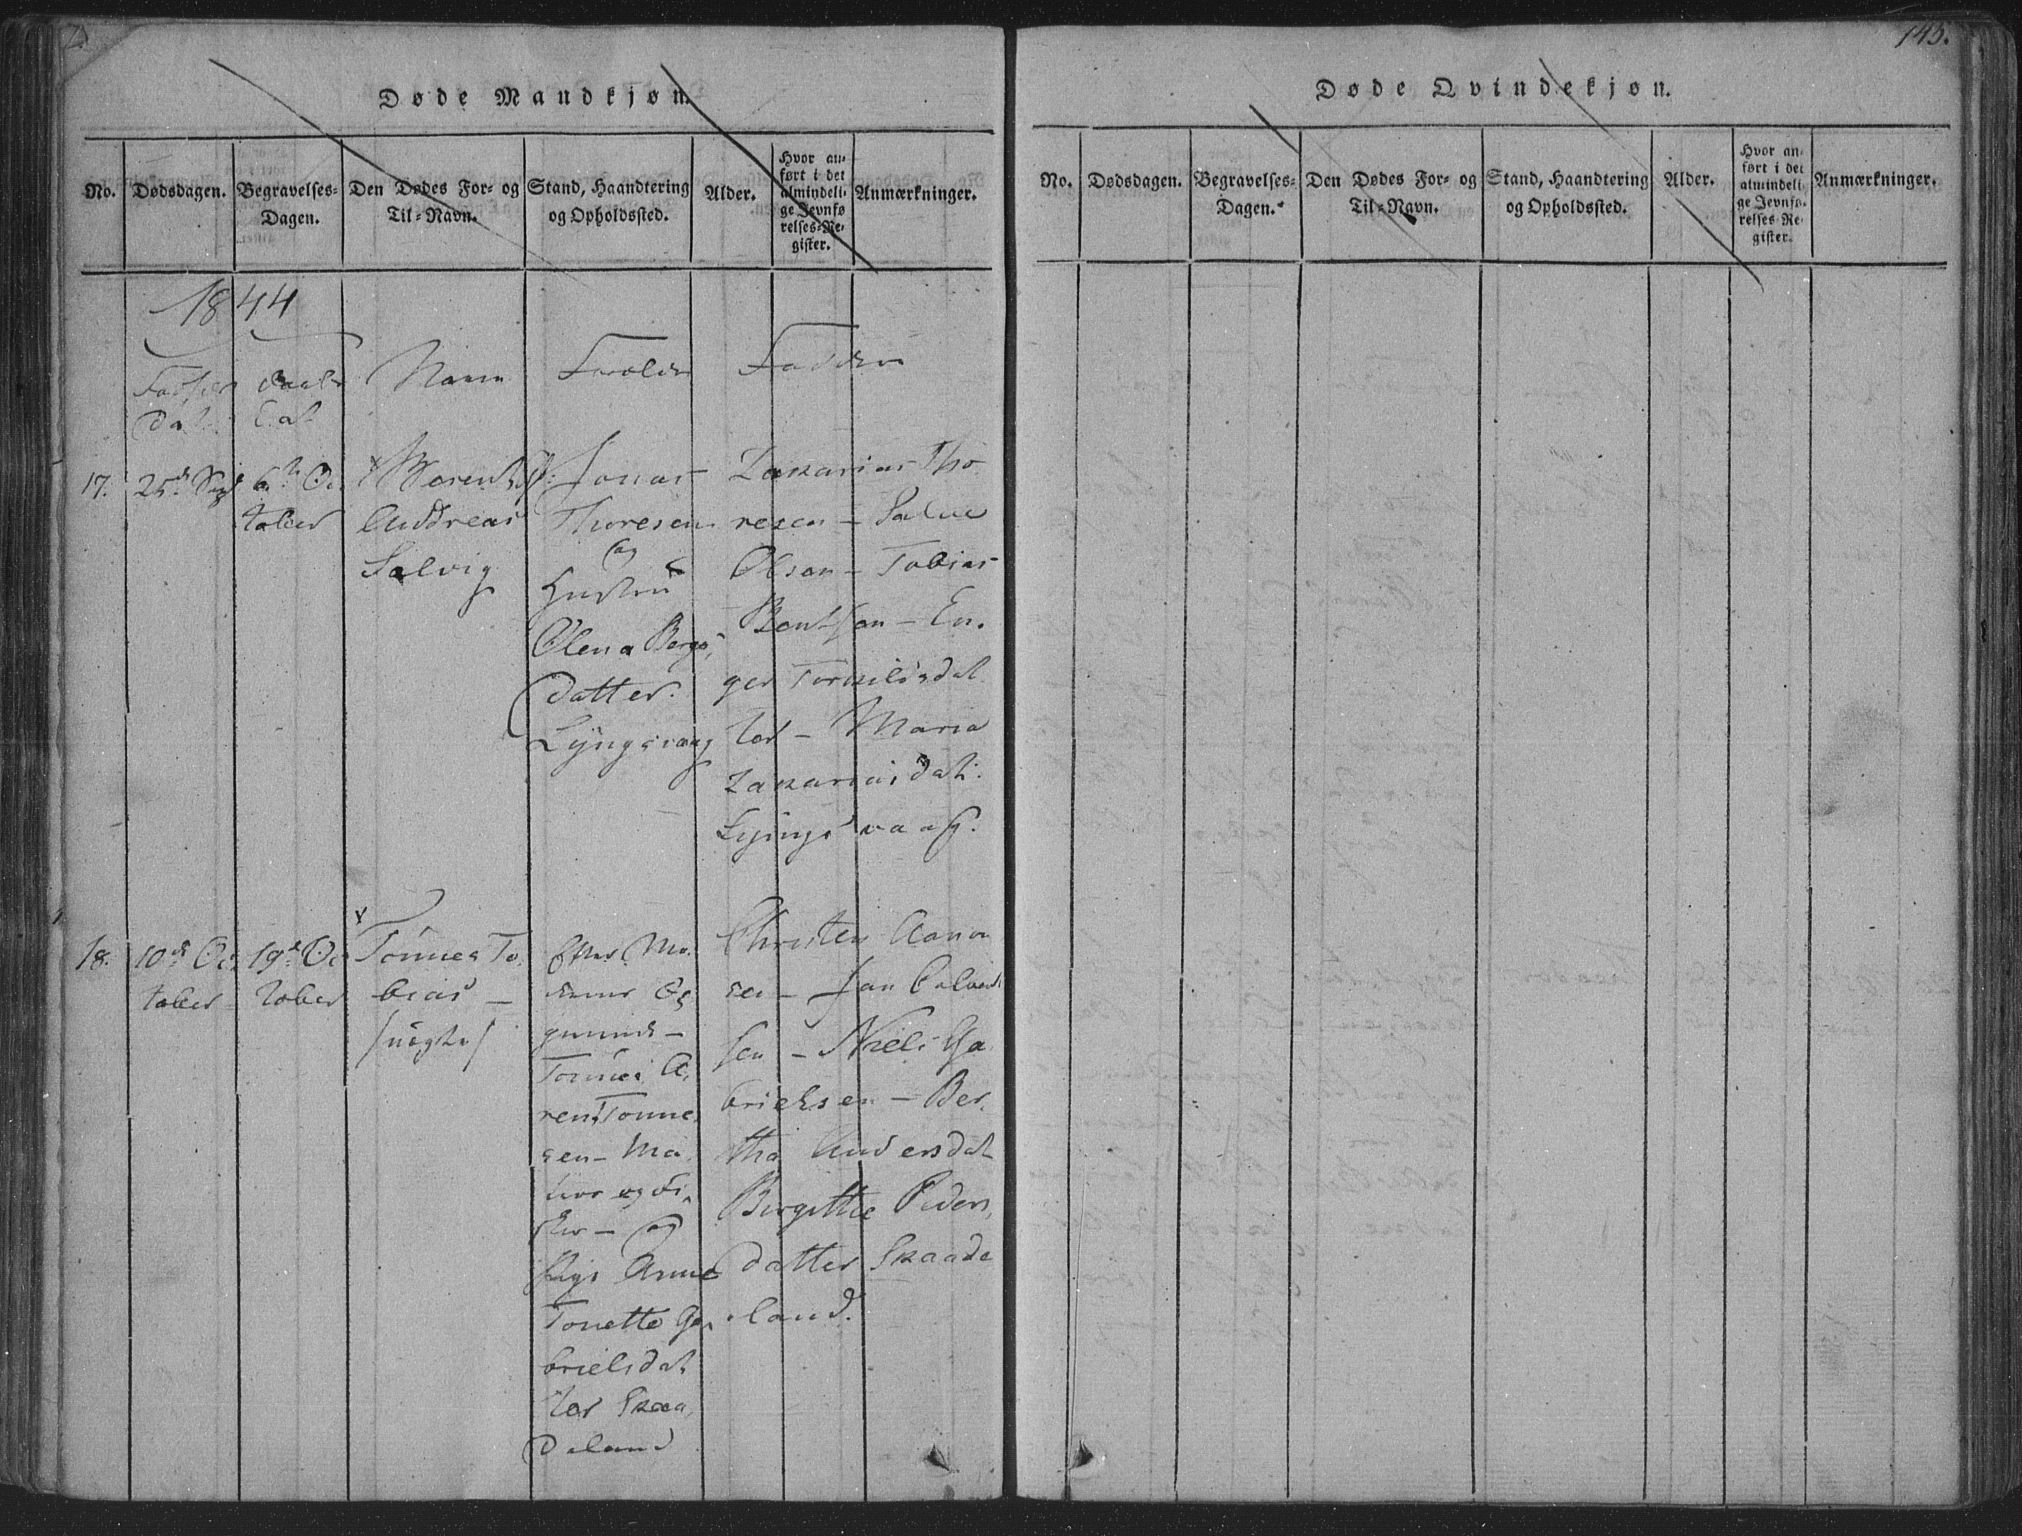 145.
Døde Mandkjøn.
No. Dødsdagen. Begravelses-Dagen. Den Dødes For- og Til-Navn. Stand, Haandtering og Opholdssted. Alder. Hvor anført i det almindelige Jevnførelses-Register. Anmærkninger.
1844
Navn
17.
25de Sept
6te Oc
tober
Andreas
Salvig
Jonas
Thoresen
og
Hustru
Olena Bergs
datter.
Lyngsvaag
Zakarias Tho
resen – Salve
Olsen – Tobias
Bentsen – En
ger Torkildsdat
ter – Maria
Zakariasdat:
Lyngsvaag.
18.
10de Oc
tober
19de Oc
tober
Tønnes To
bias –
/uægte/
gmund –
Tønnes A
rent Tønne
sen – Ma
tros og Fi
sker – og
Pige Anne
Tonette Ga
brielsdat
ter Skaa
deland
Christen Aanon
sen – Jan Calvad
sen – Niels Ga
brielsen – Ber
tha Andersdat
Birgitthe Peders
datter Skaade
land.
Døde Qvindekjøn.
No. Dødsdagen. Begravelses-Dagen. Den Dødes For- og Til-Navn. Stand, Haandtering og Opholdssted. Alder. Hvor anført i det almindelige Jevnførelses-Register. Anmærkninger.